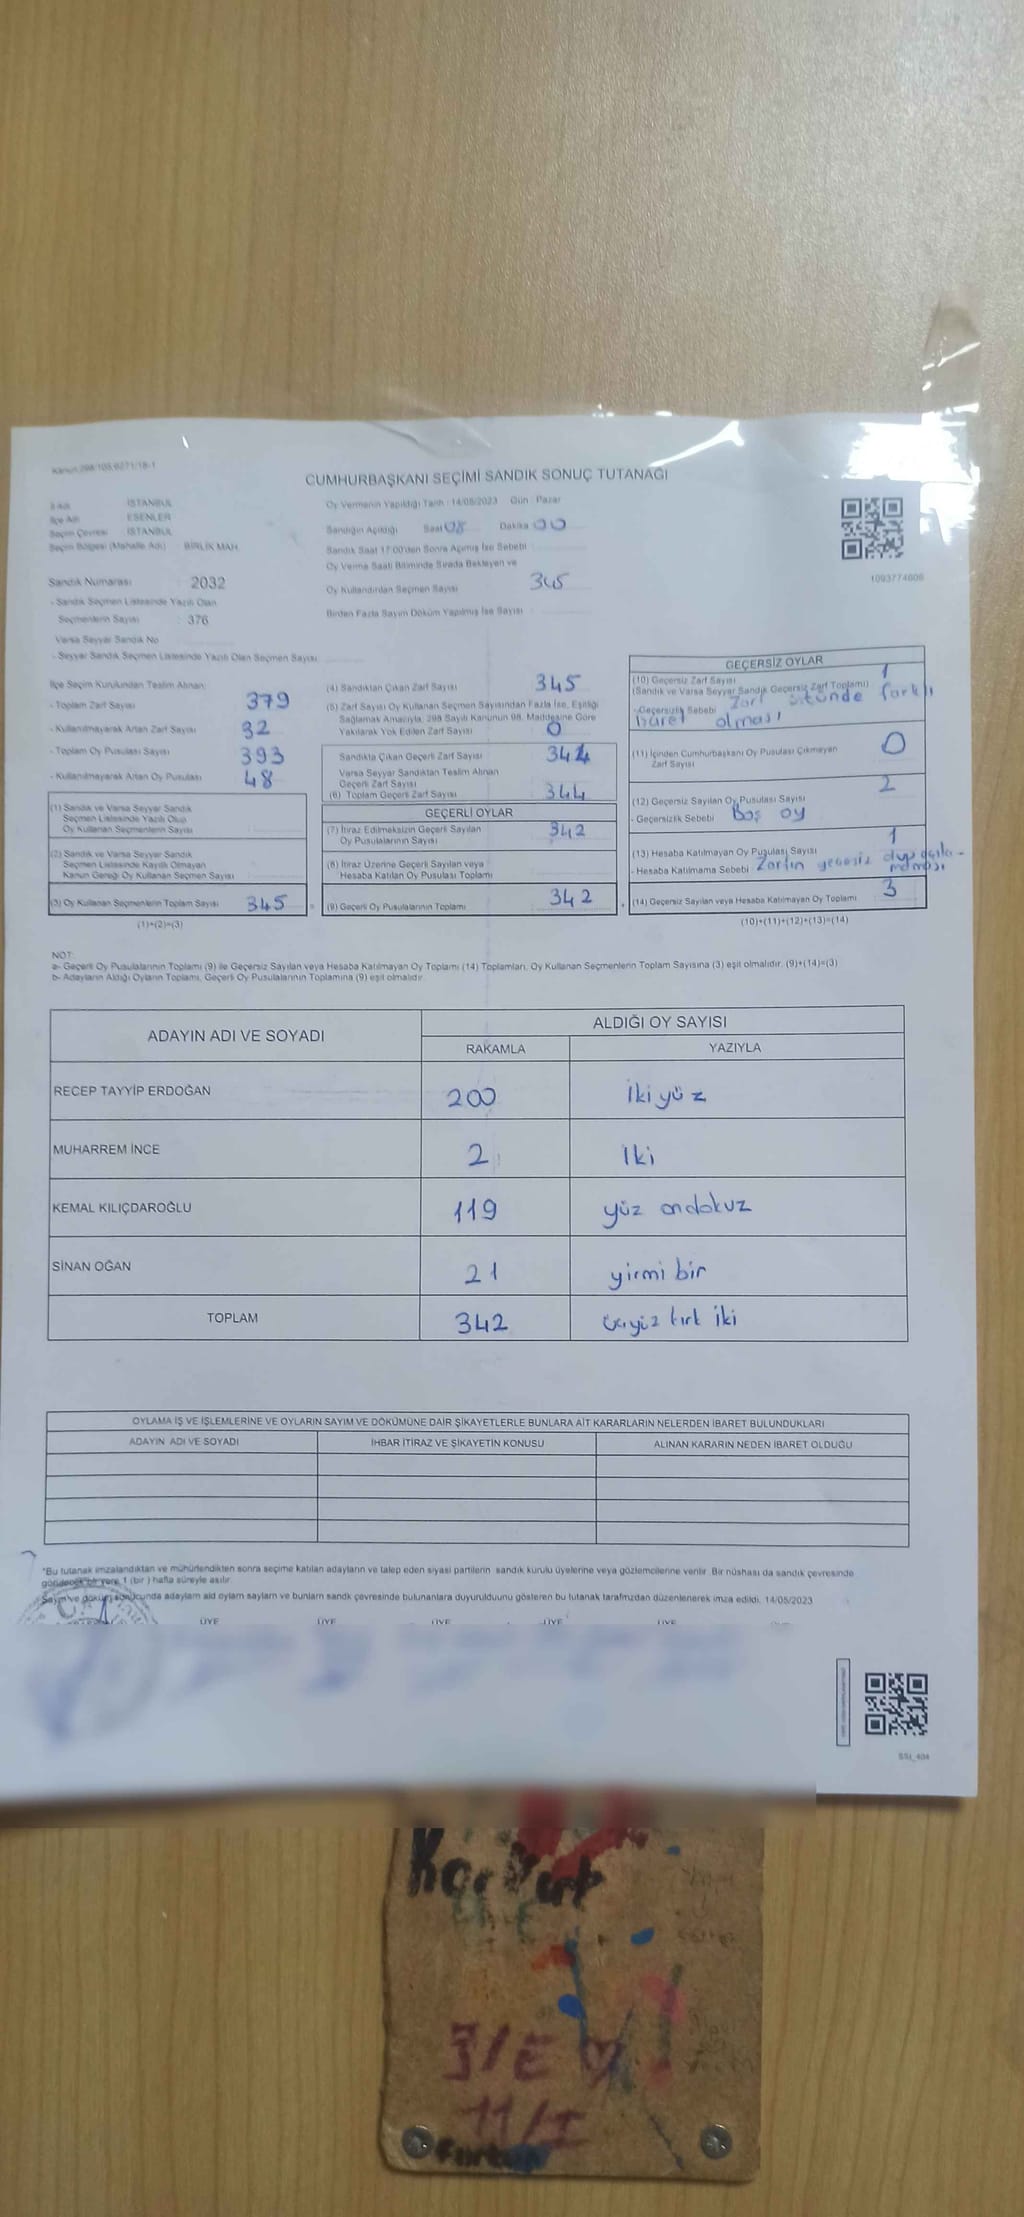 Kanun:298/105,6271/18-1
CUMHURBAŞKANI SEÇİMİ SANDIK SONUÇ TUTANAĞI
İl Adı İSTANBUL
İlçe Adı ESENLER
Seçim Çevresi İSTANBUL
Seçim Bölgesi (Mahalle Adı) BİRLİK MAH.
Sandık Numarası : 2032
- Sandık Seçmen Listesinde Yazılı Olan
Seçmenlerin Sayısı : 376
Varsa Seyyar Sandık No
- Seyyar Sandık Seçmen Listesinde Yazılı Olan Seçmen Sayısı
Oy Vermenin Yapıldığı Tarih : 14/05/2023 Gün : Pazar
Sandığın Açıldığı Saat 08 Dakika 00
Sandık Saat 17:00'den Sonra Açılmış İse Sebebi
Oy Verme Saati Bitiminde Sırada Bekleyen ve
Oy Kullandırılan Seçmen Sayısı 345
Birden Fazla Sayım Döküm Yapılmış İse Sayısı :
1093774606
İlçe Seçim Kurulundan Teslim Alınan:
- Toplam Zarf Sayısı 379
- Kullanılmayarak Artan Zarf Sayısı 32
- Toplam Oy Pusulası Sayısı 393
- Kullanılmayarak Artan Oy Pusulası 48
(1) Sandık ve Varsa Seyyar Sandık
Seçmen Listesinde Yazılı Olup
Oy Kullanan Seçmenlerin Sayısı
(2) Sandık ve Varsa Seyyar Sandık
Seçmen Listesinde Kayıtlı Olmayan
Kanun Gereği Oy Kullanan Seçmen Sayısı
(3) Oy Kullanan Seçmenlerin Toplam Sayısı 345
(1)+(2)=(3)
(4) Sandıktan Çıkan Zarf Sayısı 345
(5) Zarf Sayısı Oy Kullanan Seçmen Sayısından Fazla İse, Eşitliği
Sağlamak Amacıyla, 298 Sayılı Kanunun 98. Maddesine Göre
Yakılarak Yok Edilen Zarf Sayısı 0
Sandıkta Çıkan Geçerli Zarf Sayısı 344
Varsa Seyyar Sandıktan Teslim Alınan
Geçerli Zarf Sayısı
(6) Toplam Geçerli Zarf Sayısı 344
GEÇERLİ OYLAR
(7) İtiraz Edilmeksizin Geçerli Sayılan
Oy Pusulalarının Sayısı 342
(8) İtiraz Üzerine Geçerli Sayılan veya
Hesaba Katılan Oy Pusulası Toplamı
(9) Geçerli Oy Pusulalarının Toplamı 342
GEÇERSİZ OYLAR
(10) Geçersiz Zarf Sayısı 1
(Sandık ve Varsa Seyyar Sandık Geçersiz Zarf Toplamı)
-Geçersizlik Sebebi Zarf üstünde farklı
olması
(11) İçinden Cumhurbaşkanı Oy Pusulası Çıkmayan 0
Zarf Sayısı
(12) Geçersiz Sayılan Oy Pusulası Sayısı 2
- Geçersizlik Sebebi Boş oy
(13) Hesaba Katılmayan Oy Pusulası Sayısı 1
- Hesaba Katılmama Sebebi Zarfın geçersiz
(14) Geçersiz Sayılan veya Hesaba Katılmayan Oy Toplamı 3
(10)+(11)+(12)+(13)=(14)
NOT:
a- Geçerli Oy Pusulalarının Toplamı (9) ile Geçersiz Sayılan veya Hesaba Katılmayan Oy Toplamı (14) Toplamları, Oy Kullanan Seçmenlerin Toplam Sayısına (3) eşit olmalıdır. (9)+(14)=(3)
b- Adayların Aldığı Oyların Toplamı, Geçerli Oy Pusulalarının Toplamına (9) eşit olmalıdır.
ADAYIN ADI VE SOYADI ALDIĞI OY SAYISI
RAKAMLA YAZIYLA
RECEP TAYYİP ERDOĞAN 200 İkiyüz
MUHARREM İNCE 2 İki
KEMAL KILIÇDAROĞLU 119 yüz ondokuz
SİNAN OĞAN 21 yirmi bir
TOPLAM 342 üçyüz kırk iki
OYLAMA İŞ VE İŞLEMLERİNE VE OYLARIN SAYIM VE DÖKÜMÜNE DAİR ŞİKAYETLERLE BUNLARA AİT KARARLARIN NELERDEN İBARET BULUNDUKLARI
ADAYIN ADI VE SOYADI İHBAR İTİRAZ VE ŞİKAYETİN KONUSU ALINAN KARARIN NEDEN İBARET OLDUĞU
*Bu tutanak imzalandıktan ve mühürlendikten sonra seçime katılan adayların ve talep eden siyasi partilerin sandık kurulu üyelerine veya gözlemcilerine verilir. Bir nüshası da sandık çevresinde
görülecek bir yere 1 (bir ) hafta süreyle asılır.
Sayım ve döküm sonucunda adayların ald oyların sayların ve bunların sandk çevresinde bulunanlara duyurulduunu gösteren bu tutanak tarafmzdan düzenlenerek imza edildi. 14/05/2023
ÜYE ÜYE ÜYE ÜYE ÜYE
SSt_404
Korkut
3/E
11/I
Furkan